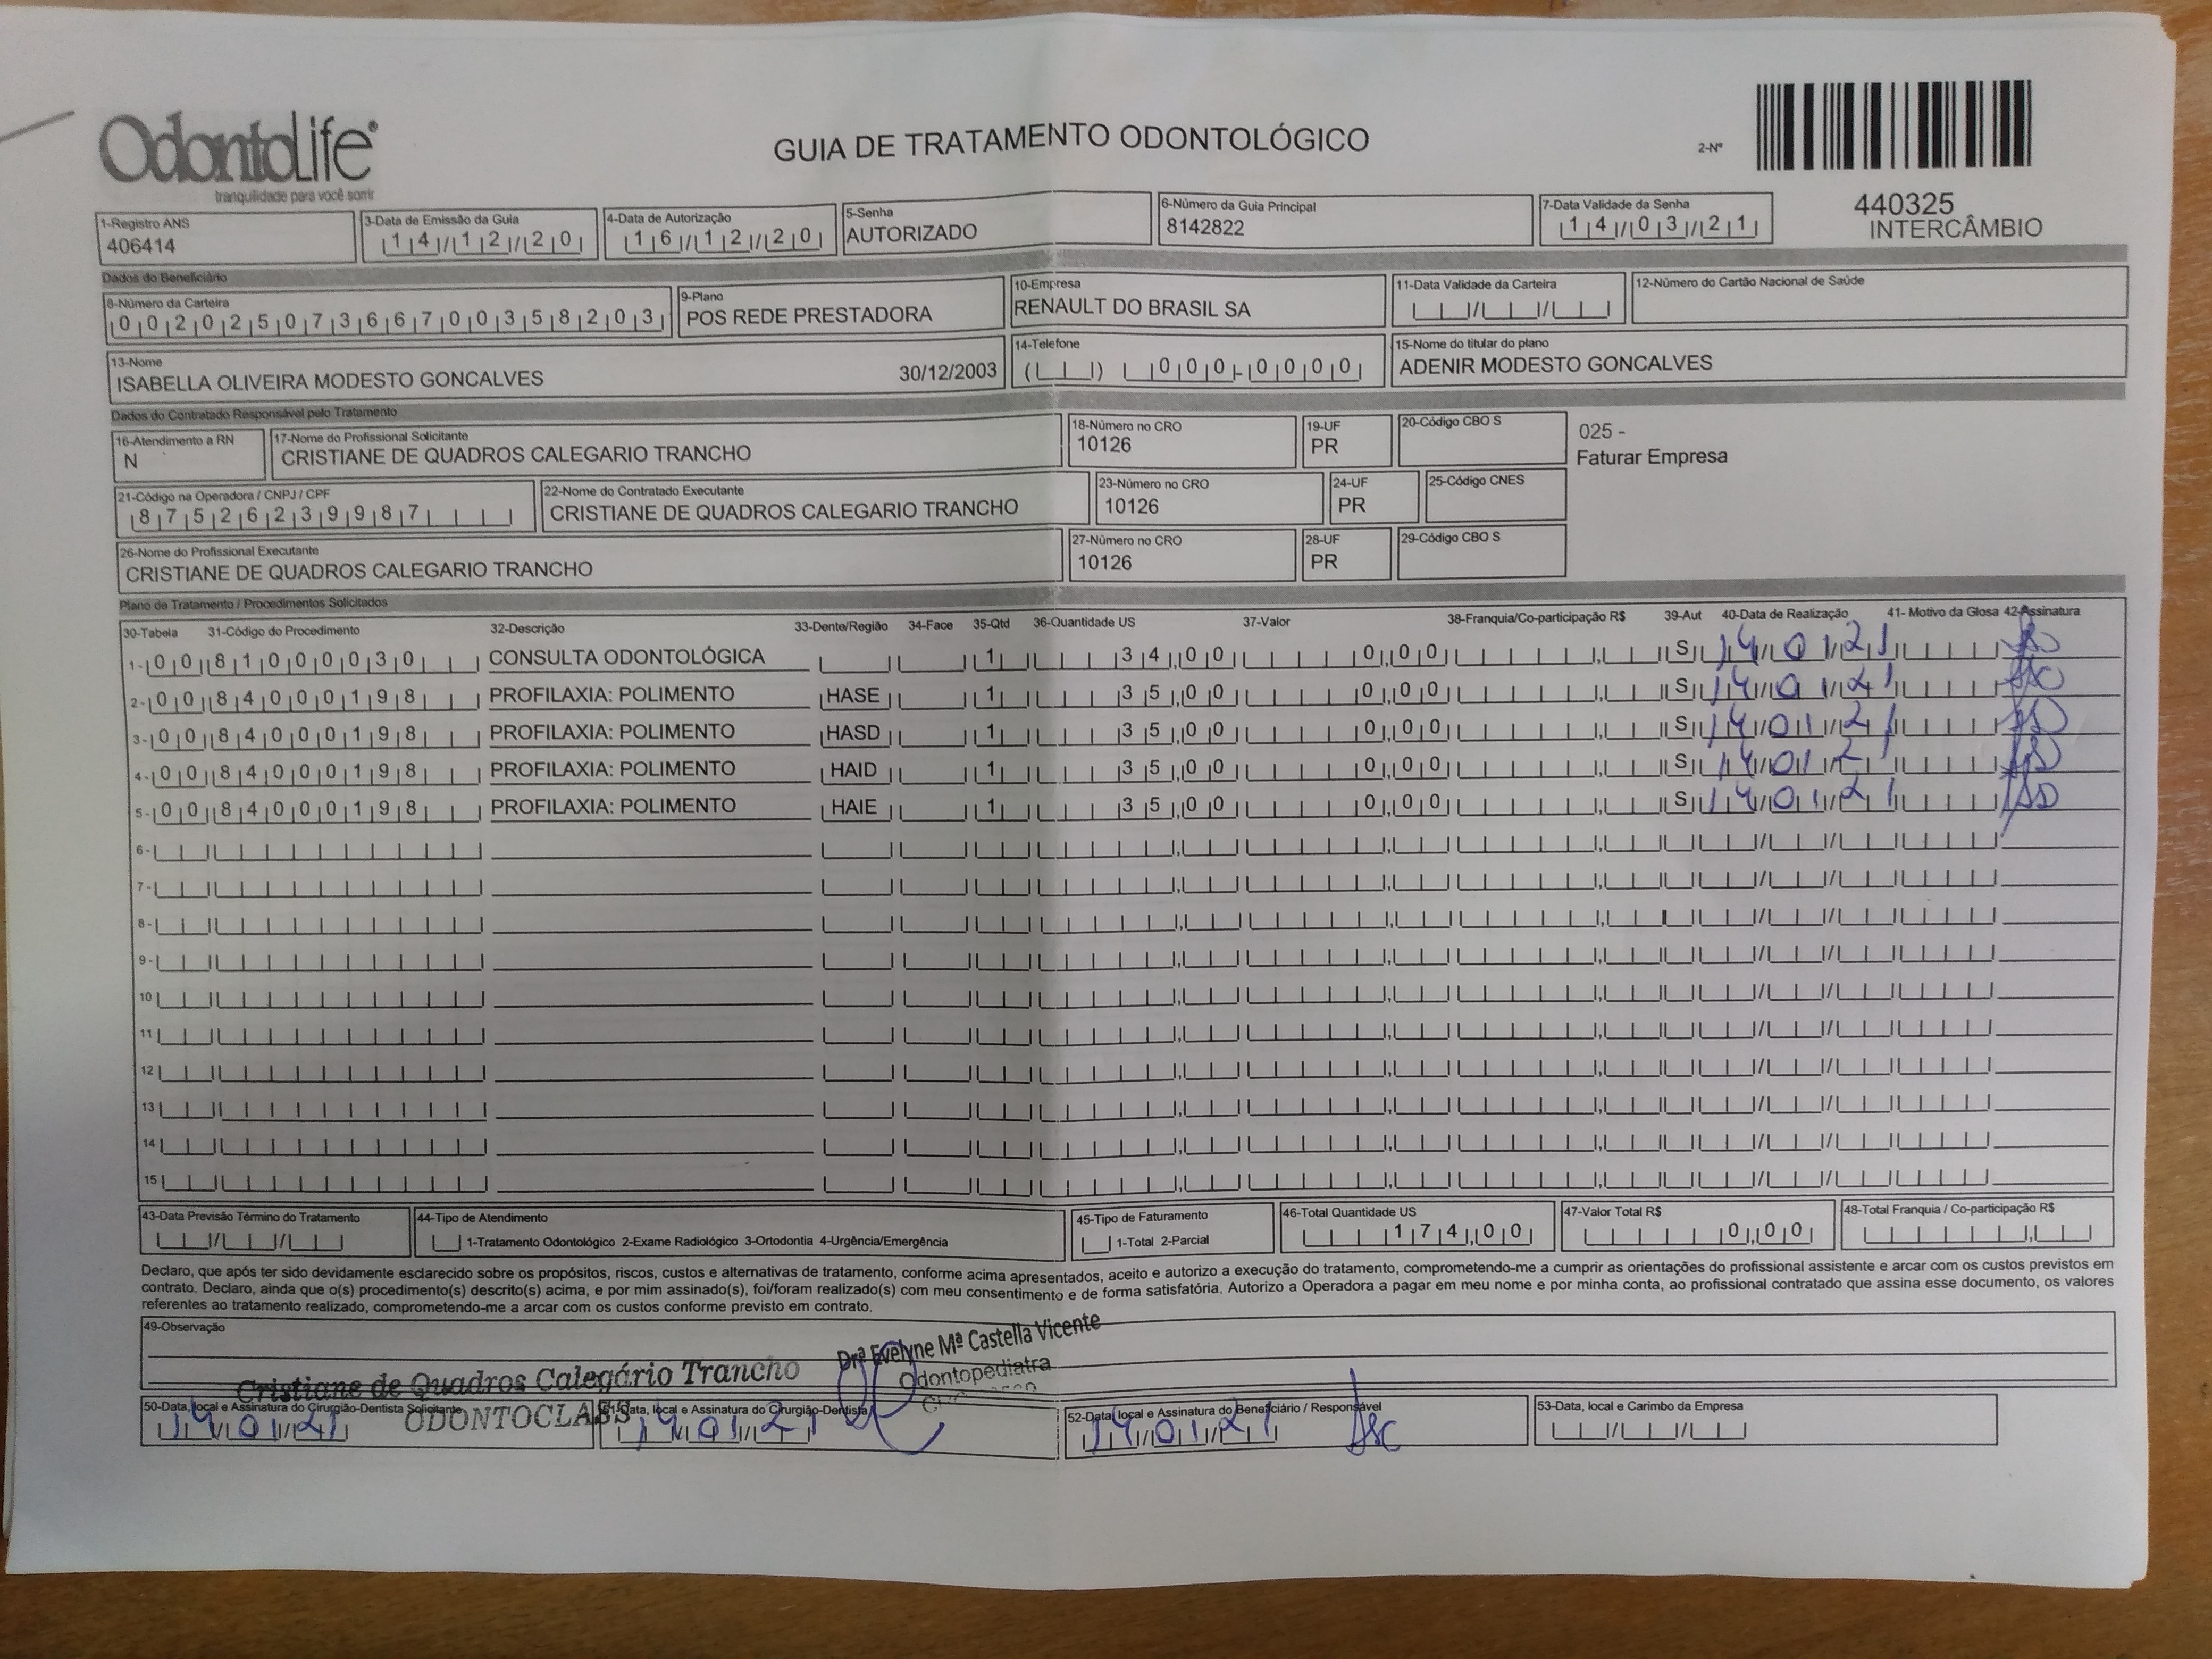 OdontoLife®
tranquilidade para você sorrir
GUIA DE TRATAMENTO ODONTOLÓGICO
2-Nº
440325
INTERCÂMBIO
1-Registro ANS
406414
3-Data de Emissão da Guia
14/12/20
4-Data de Autorização
16/12/20
5-Senha
AUTORIZADO
6-Número da Guia Principal
8142822
7-Data Validade da Senha
14/03/21
Dados do Beneficiário
8-Número da Carteira
00202507366700358203
9-Plano
POS REDE PRESTADORA
10-Empresa
RENAULT DO BRASIL SA
11-Data Validade da Carteira
12-Número do Cartão Nacional de Saúde
13-Nome
ISABELLA OLIVEIRA MODESTO GONCALVES 30/12/2003
14-Telefone
( ) 000-0000
15-Nome do titular do plano
ADENIR MODESTO GONCALVES
Dados do Contratado Responsável pelo Tratamento
16-Atendimento a RN
N
17-Nome do Profissional Solicitante
CRISTIANE DE QUADROS CALEGARIO TRANCHO
18-Número no CRO
10126
19-UF
PR
20-Código CBO S
025 -
Faturar Empresa
21-Código na Operadora / CNPJ / CPF
87526239987
22-Nome do Contratado Executante
CRISTIANE DE QUADROS CALEGARIO TRANCHO
23-Número no CRO
10126
24-UF
PR
25-Código CNES
26-Nome do Profissional Executante
CRISTIANE DE QUADROS CALEGARIO TRANCHO
27-Número no CRO
10126
28-UF
PR
29-Código CBO S
Plano de Tratamento / Procedimentos Solicitados
30-Tabela 31-Código do Procedimento 32-Descrição 33-Dente/Região 34-Face 35-Qtd 36-Quantidade US 37-Valor 38-Franquia/Co-participação R$ 39-Aut 40-Data de Realização 41- Motivo da Glosa 42-Assinatura
1- 00 81000030 CONSULTA ODONTOLÓGICA 1 34,00 0,00 S 14/01/21
2- 00 84000198 PROFILAXIA: POLIMENTO HASE 1 35,00 0,00 S 14/01/21
3- 00 84000198 PROFILAXIA: POLIMENTO HASD 1 35,00 0,00 S 14/01/21
4- 00 84000198 PROFILAXIA: POLIMENTO HAID 1 35,00 0,00 S 14/01/21
5- 00 84000198 PROFILAXIA: POLIMENTO HAIE 1 35,00 0,00 S 14/01/21
6-
7-
8-
9-
10
11
12
13
14
15
43-Data Previsão Término do Tratamento
44-Tipo de Atendimento
1-Tratamento Odontológico 2-Exame Radiológico 3-Ortodontia 4-Urgência/Emergência
45-Tipo de Faturamento
1-Total 2-Parcial
46-Total Quantidade US
174,00
47-Valor Total R$
0,00
48-Total Franquia / Co-participação R$
Declaro, que após ter sido devidamente esclarecido sobre os propósitos, riscos, custos e alternativas de tratamento, conforme acima apresentados, aceito e autorizo a execução do tratamento, comprometendo-me a cumprir as orientações do profissional assistente e arcar com os custos previstos em
contrato. Declaro, ainda que o(s) procedimento(s) descrito(s) acima, e por mim assinado(s), foi/foram realizado(s) com meu consentimento e de forma satisfatória. Autorizo a Operadora a pagar em meu nome e por minha conta, ao profissional contratado que assina esse documento, os valores
referentes ao tratamento realizado, comprometendo-me a arcar com os custos conforme previsto em contrato.
49-Observação
Drª Evelyne Mª Castella Vicente
Odontopediatra
Cristiane de Quadros Calegário Trancho
ODONTOCLASS
50-Data, local e Assinatura do Cirurgião-Dentista Solicitante
14/01/21
51-Data, local e Assinatura do Cirurgião-Dentista
14/01/21
52-Data, local e Assinatura do Beneficiário / Responsável
14/01/21
53-Data, local e Carimbo da Empresa